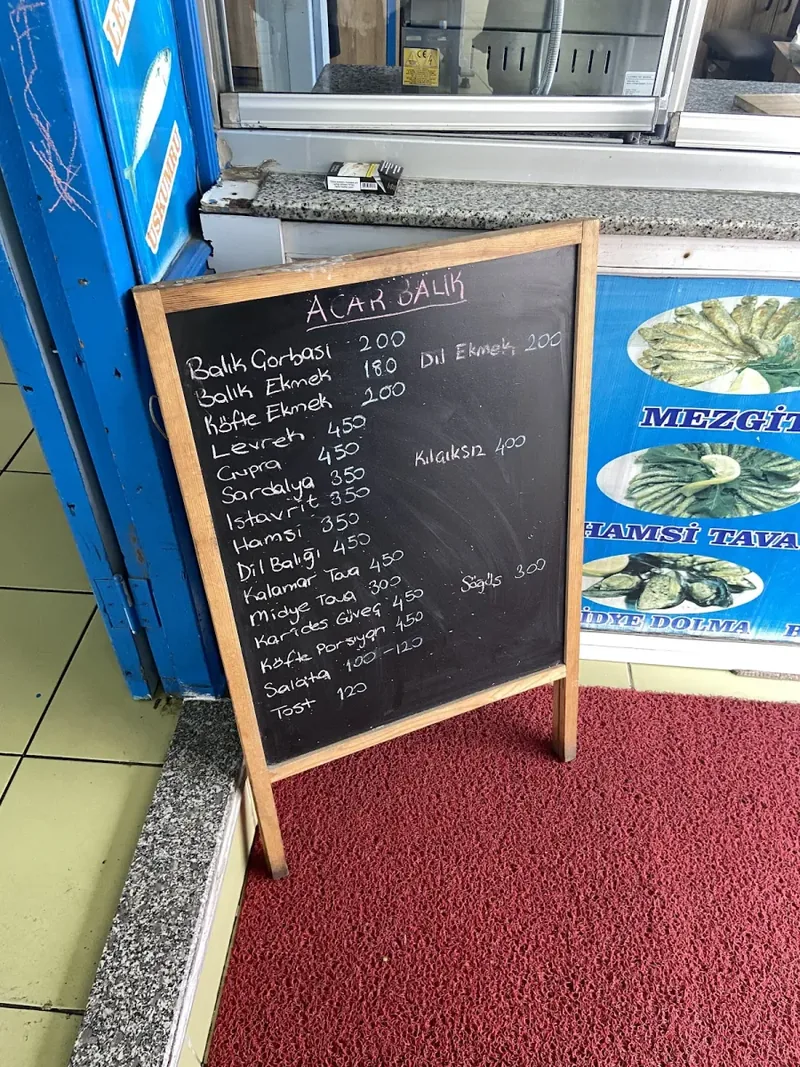 ACAR BALIK
Balık Çorbası 200
Balık Ekmek 180
Dil Ekmek 200
Köfte Ekmek 200
Levrek 450
Çupra 450
Sardalya 350
Kılçıksız 400
İstavrit 350
Hamsi 350
Dil Balığı 450
Kalamar Tava 450
Midye Tava 300
Söğüş 300
Karides Güveç 450
Köfte Porsiyon 450
Salata 100-120
Tost 120
USKUMRU
CE
MEZGİT
HAMSİ TAVA
İDYE DOLMA